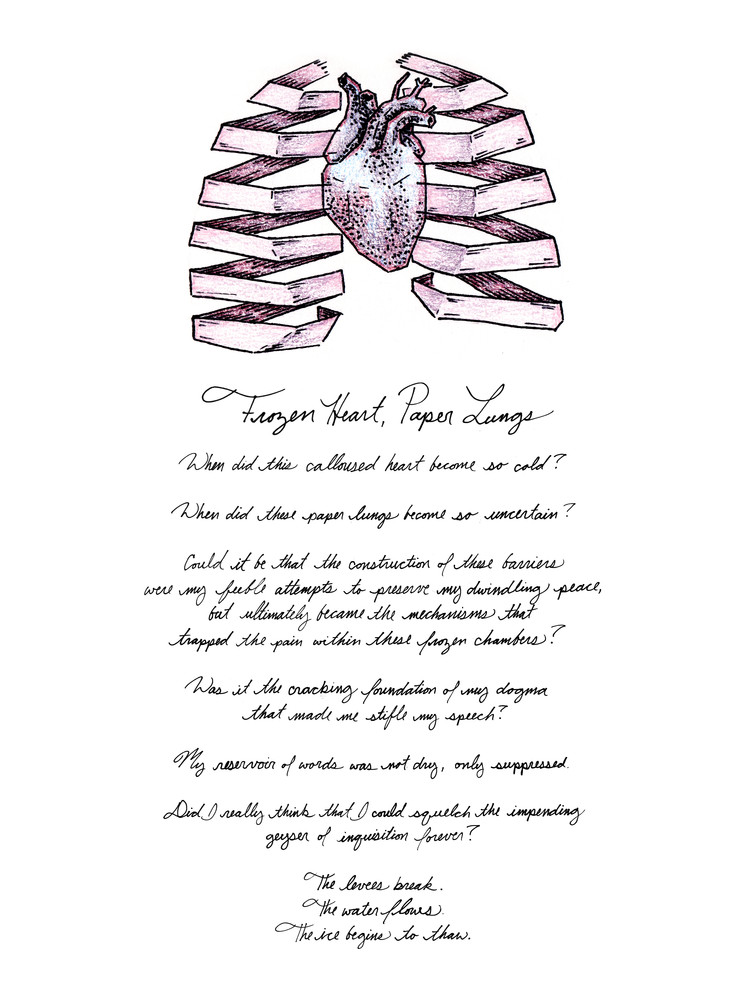 Frozen Heart, Paper Lungs
When did this calloused heart become so cold?
When did these paper lungs become so uncertain?
Could it be that the construction of these barriers
were my feeble attempts to preserve my dwindling peace,
but ultimately became the mechanisms that
trapped the pain within these frozen chambers?
Was it the cracking foundation of my dogma
that made me stifle my speech?
My reservoir of words was not dry, only suppressed.
Did I really think that I could squelch the impending
geyser of inquisition forever?
The levees break.
The water flows.
The ice begins to thaw.